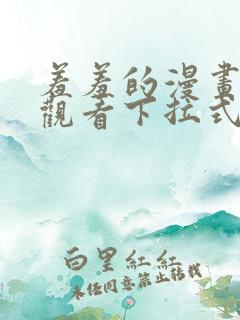 羞羞的漫畫
觀看下拉式
白里紅紅
未经同意禁止转载